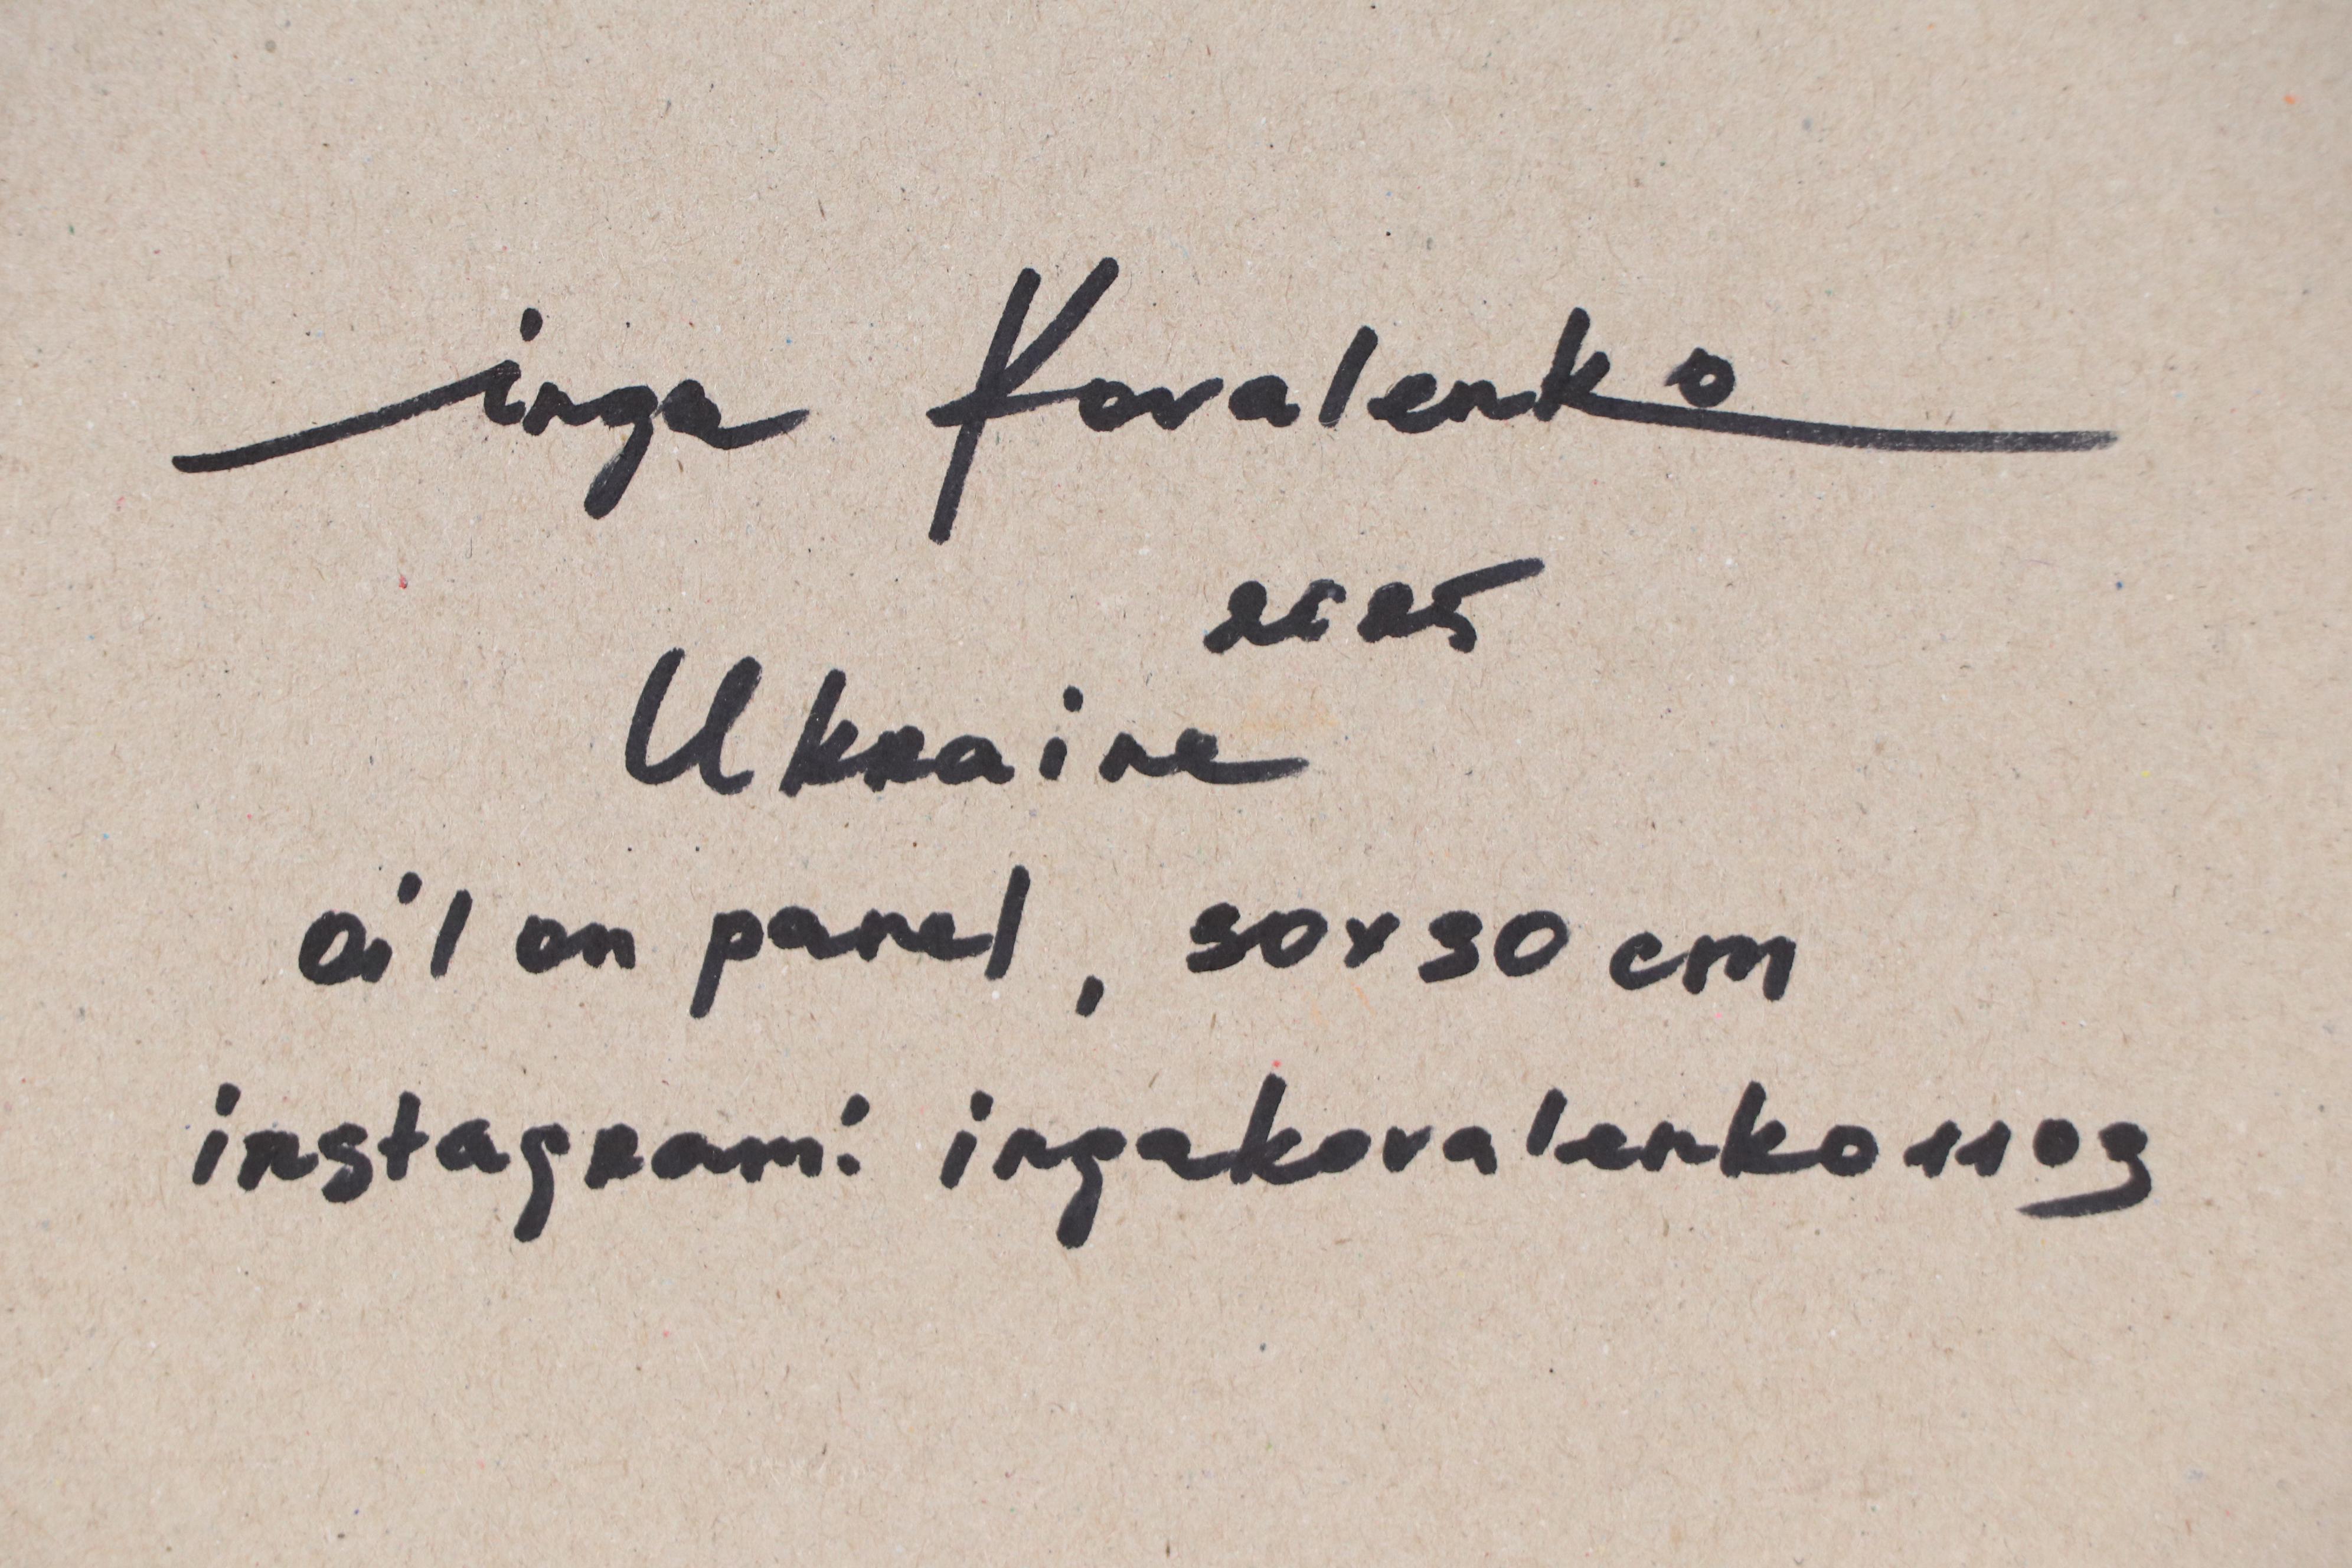 inga Kovalenko
2025
Ukraine
oil on panel, 30x30 cm
instagram: ingakovalenko1103